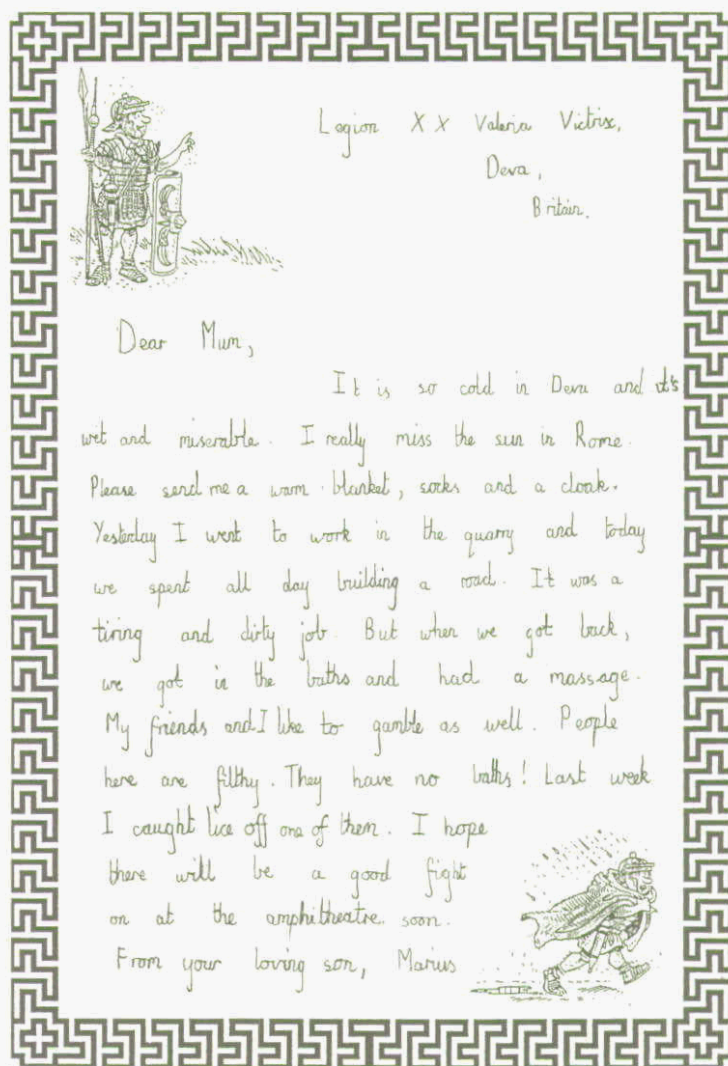 Legion XX Valeria Victrix,
Deva,
Britain.
Dear Mum,
It is so cold in Deva and it's
wet and miserable. I really miss the sun in Rome.
Please send me a warm blanket, socks and a cloak.
Yesterday I went to work in the quarry and today
we spent all day building a road. It was a
tiring and dirty job. But when we got back,
we got in the baths and had a massage.
My friends and I like to gamble as well. People
here are filthy. They have no baths! Last week
I caught lice off one of them. I hope
there will be a good fight
on at the amphitheatre soon.
From your loving son, Marius